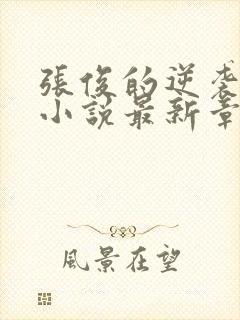 張俊的逆袭
小說最新章
風景在望